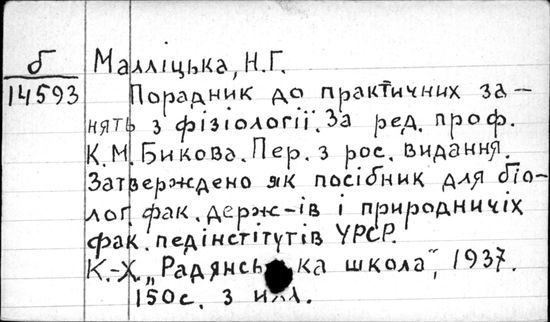 б
14593
Малліцька, Н.Г.
Порадник до практичних за-
нять з фізіології. За ред. проф.
К.М. Бикова. Пер. з рос. видання.
Затверждено як посібник для біо-
лог. фак. держ-ів і природничіх
фак. педінстітутів УРСР.
К.-Х. „Радянська школа", 1937.
150 с. з илл.